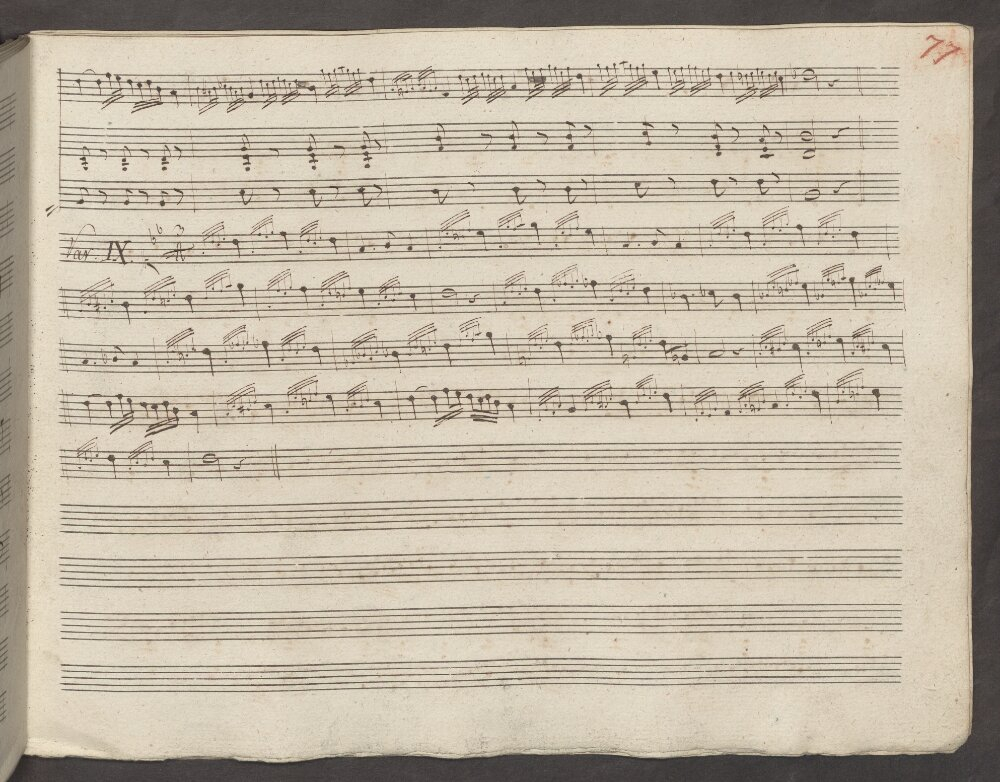 77
Var. IX.